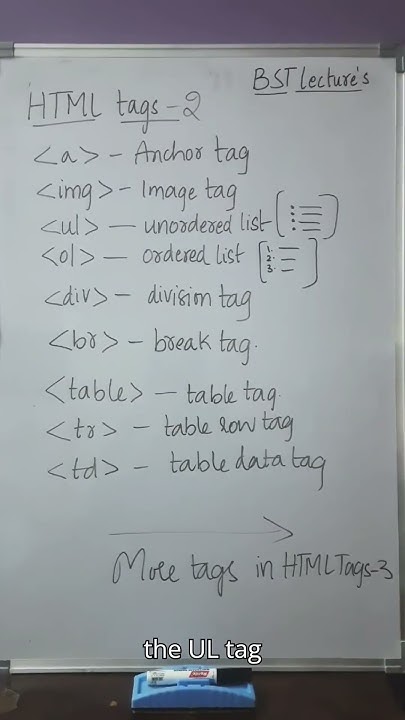 BST Lecture's
HTML tags-2
<a> - Anchor tag
<img> - Image tag
<ul> - unordered list
<ol> - ordered list
1.
2.
3.
<div> - division tag
<br> - break tag.
<table> - table tag.
<tr> - table row tag
<td> - table data tag
More tags in HTML Tags-3
the UL tag